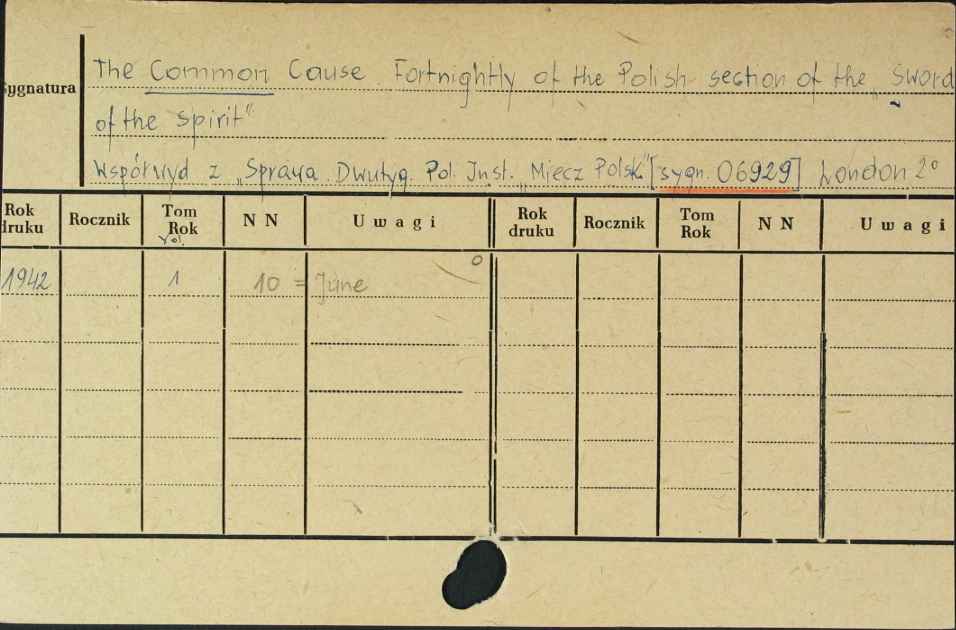 The Common Cause. Fortnightly of the Polish section of the „Sword
ygnatura
of the Spirit"
Współwyd z „Sprawa. Dwutyg. Pol. Inst. „Miecz Polski" [sygn. 06929] London 2°
Rok druku Rocznik Tom Rok Vol. N N Uwagi Rok druku Rocznik Tom Rok N N Uwagi
1942 1 10 = June